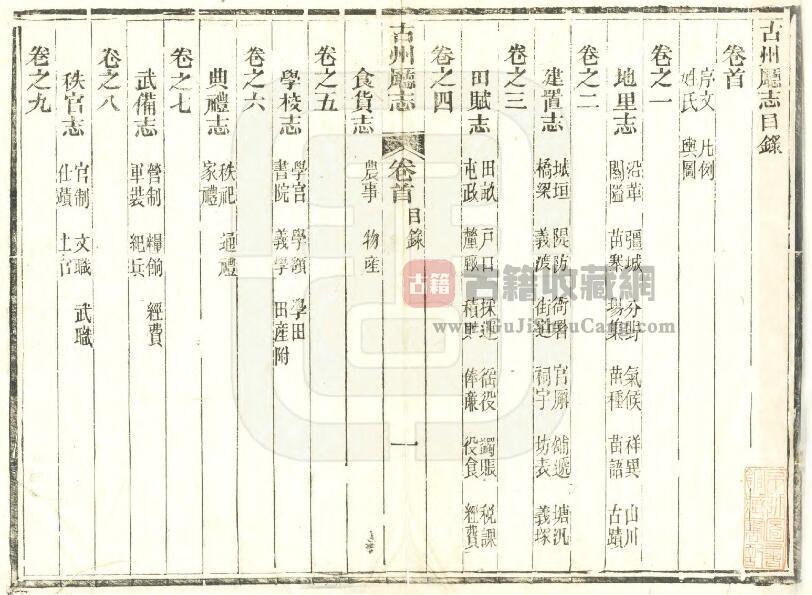 古州廳志目錄
卷首
序文 凡例
姓氏 輿圖
卷之一
地里志
沿革 疆域 分野 氣候 祥異 山川
關隘 苗寨 場集 苗種 苗語 古蹟
卷之二
建置志
城垣 隄防 衙署 官廨 舖遞 塘汛
橋梁 義渡 街道 祠宇 坊表 義塚
卷之三
田賦志
田畝 戶口 採運 徭役 蠲賑 稅課
屯政 積貯 俸廉 役食 經費
卷之四
古州廳志
卷首
目錄
一
食貨志
農事 物産
卷之五
學校志
學宮 學額 學田
書院 義學 田産附
卷之六
典禮志
秩祀 通禮
家禮
卷之七
武備志
營制 糧餉 經費
軍裝 紀兵
卷之八
秩官志
官制 文職 武職
仕蹟 土官
卷之九
古籍
古籍收藏網
www.GuJiShuCang.com